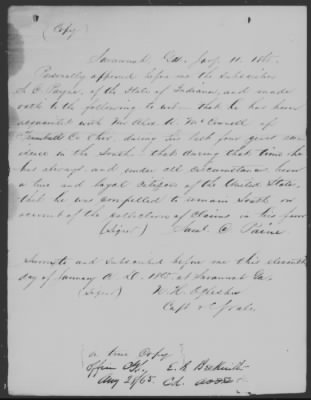 (Copy)
Savannah, Ga. Jany. 11. 1865.
Personally appeared before me the Subscriber
S. C. Payne, of the State of Indiana, and made
oath to the following to wit – that he has been
acquainted with Mr. Alex. A. McConnell of
Trumbull Co Ohio, during his last four years res-
idence in the South – that during that time he
has always and under all circumstances been
a true and loyal citizen of the United States,
that he was compelled to remain South on
account of the collections of Claims in his favor
(Signed) Saml. C. Paine
Sworn to and Subscribed before me this eleventh
day of January A. D. 1865 at Savannah Ga.
(Signed) W. H. Oglesbee
Capt &
(a true Copy)
Aug 28/65. E. R.